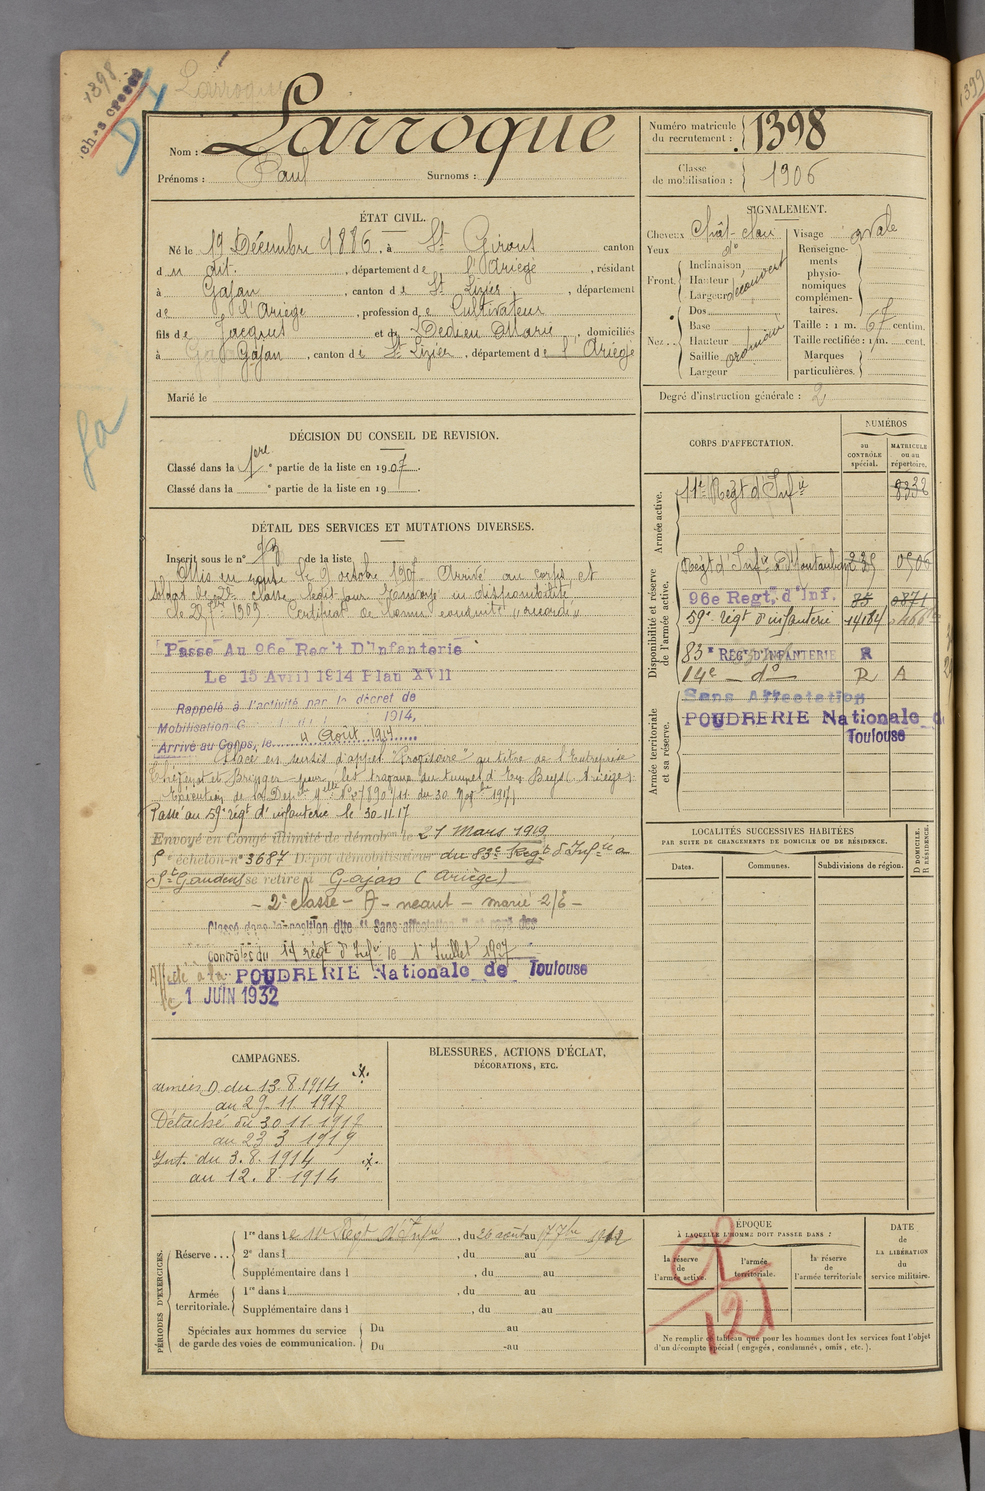 1398
Larroque
Nom : Larroque
Prénoms : Paul Surnoms :
Numéro matricule du recrutement : 1398
Classe de mobilisation : 1906
ÉTAT CIVIL.
Né le 19 Décembre 1886, à St Girons canton
d u dit, département de l'Ariège, résidant
à Gajan, canton de St Lizier, département
de l'Ariège, profession de Cultivateur
fils de Jacques et de Dedieu Marie, domiciliés
à Gajan, canton de St Lizier, département de l'Ariège
Marié le
SIGNALEMENT.
Cheveux chât-clair
Yeux do
Front Inclinaison
Hauteur découvert
Largeur
Nez Dos
Base
Hauteur ordinaire
Saillie
Largeur
Visage ovale
Renseignements physionomiques complémentaires.
Taille : 1 m. 67 centim.
Taille rectifiée : 1 m. cent.
Marques particulières.
Degré d'instruction générale : 2
DÉCISION DU CONSEIL DE REVISION.
Classé dans la 1ere partie de la liste en 1907.
Classé dans la e partie de la liste en 19
DÉTAIL DES SERVICES ET MUTATIONS DIVERSES.
Inscrit sous le n° de la liste
Mis en route le 9 octobre 1907 Arrivé au corps et
soldat de 2e classe ledit jour. Envoyé en disponibilité
le 25 1909 Certificat de bonne conduite "accordé"
Passé Au 96e Reg't D'Infanterie
Le 15 Avril 1914 Plan XVII
Rappelé à l'activité par le décret de
Mobilisation G 1914,
Arrivé au Corps, le août 1914
Placé en sursis d'appel "Provisoire" au titre de l'Entreprise
et Bringer pour les travaux du tunnel d' (Ariège).
Exécution de la 1917
Passé au 59e régt d'infanterie le 30.11.17
Envoyé en Congé illimité de démobon le 21 Mars 1919
5e échelon n° 3687 Dépôt démobilisateur du 83e Regt d'Infrie à
St Gaudens se retire à Gajan (Ariège)
- 2e classe - A - neant - marié 2/E -
Classé dans la position dite "Sans affectation" et rayé des
Contrôles du 14 régt d'Infie le 1er Juillet 1927
Affecté à la POUDRERIE Nationale de Toulouse
le 1 JUIN 1932
CORPS D'AFFECTATION.
NUMÉROS
au CONTRÔLE spécial.
MATRICULE ou au répertoire.
Armée active.
11e Regt d'Infie 8332
Disponibilité et réserve de l'armée active.
Regt d'Infie de Montauban
96e Regt, d'Inf. 85 0871
59e régt d'infanterie 14184
83e REGt D'INFANTERIE R
14e - do R A
Armée territoriale et sa réserve.
Sans Affectation
POUDRERIE Nationale d
Toulouse
LOCALITÉS SUCCESSIVES HABITÉES
PAR SUITE DE CHANGEMENTS DE DOMICILE OU DE RÉSIDENCE.
Dates. Communes. Subdivisions de région. D DOMICILE. R RÉSIDENCE.
CAMPAGNES.
armées D du 13.8.1914
au 29.11.1917
Détaché du 30.11.1917
au 23 3 1919
Int. du 3.8.1914
au 12.8.1914
BLESSURES, ACTIONS D'ÉCLAT,
DÉCORATIONS, ETC.
PÉRIODES D'EXERCICES.
Réserve... 1re dans le Régt d'Infie, du 26 août au 17 7bre 1912
2e dans l , du au
Supplémentaire dans l , du au
Armée territoriale. 1re dans l , du au
Supplémentaire dans l , du au
Spéciales aux hommes du service de garde des voies de communication. Du au
Du au
ÉPOQUE
À LAQUELLE L'HOMME DOIT PASSER DANS :
la réserve de l'armée active.
l'armée territoriale.
la réserve de l'armée territoriale
DATE DE LA LIBÉRATION du service militaire.
Ne remplir ce tableau que pour les hommes dont les services font l'objet
d'un décompte spécial (engagés, condamnés, omis, etc.).
1399